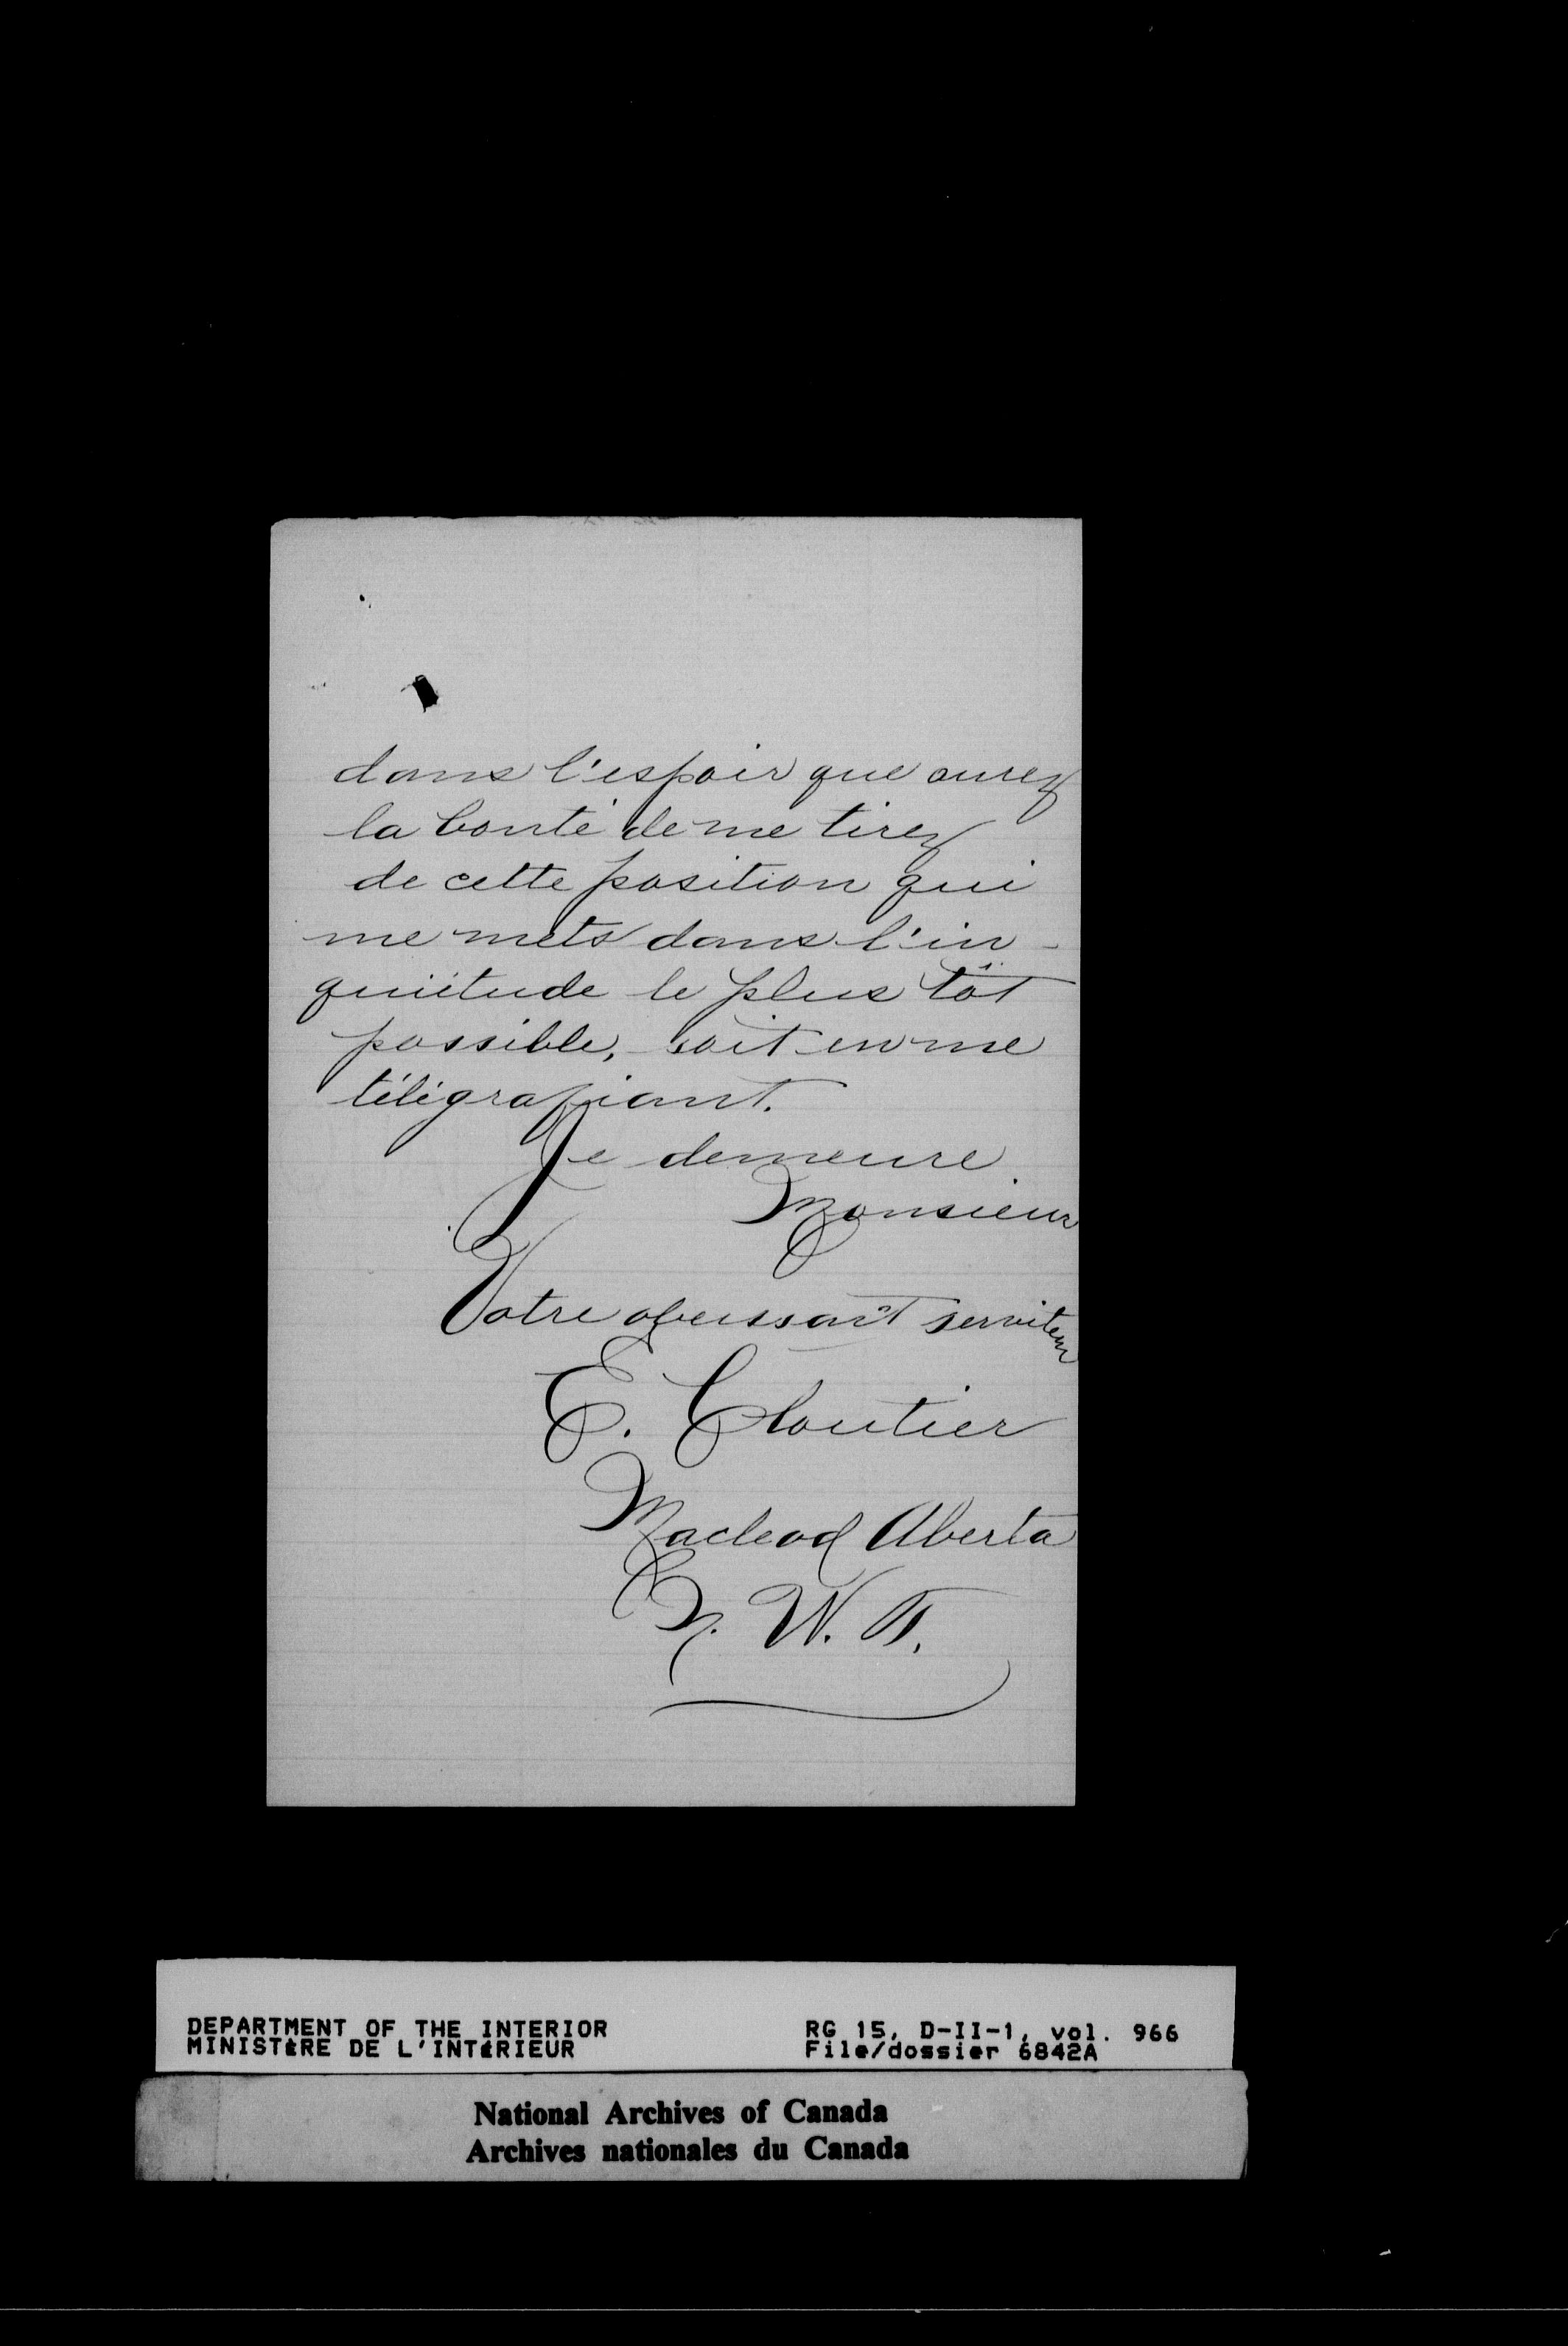 dans l'espoir que aurez
la bonté de me tirez
de cette position qui
me mets dans l'in-
quiétude le plus tôt
possible, soit en me
télégrafiant.
Je demeure
Monsieur
Votre obeissant serviteur
E. Cloutier
Macleod Alberta
N. W. T.
DEPARTMENT OF THE INTERIOR
MINISTÈRE DE L'INTÉRIEUR
RG 15, D-II-1, vol. 966
File/dossier 6842A
National Archives of Canada
Archives nationales du Canada